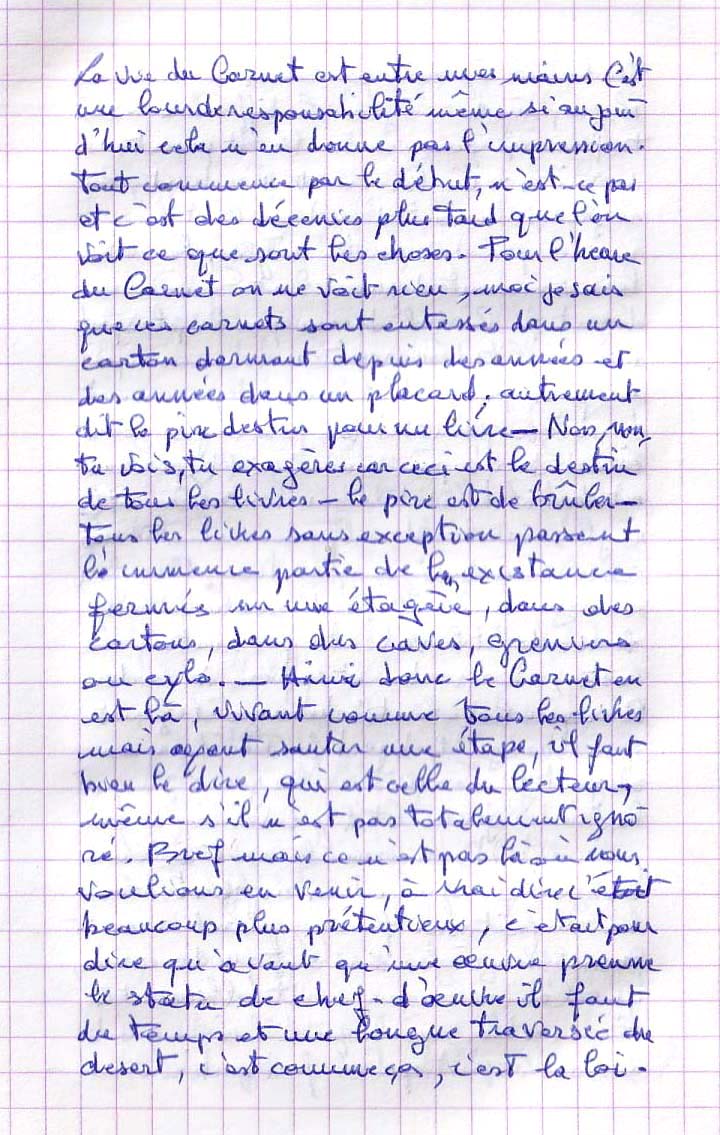 La vie du Carnet est entre mes mains C'est
une lourde responsabilité même si aujour
d'hui cela n'en donne pas l'impression.
Tout commence par le début, n'est-ce pas
et c'est des décenies plus tard que l'on
voit ce que sont les choses. Pour l'heure
du Carnet on ne voit rien, moi je sais
que ces carnets sont entassés dans un
carton dormant depuis des années et
des années dans un placard, autrement
dit le pire destin pour un livre – Non, non,
tu vois, tu exagères car ceci est le destin
de tous les livres – le pire est de brûler –
Tous les livres sans exception passent
la immence partie de leur existance
fermés sur une étagère, dans des
cartons, dans des caves, greniers
ou – Ainsi donc le Carnet en
est là, vivant comme tous les livres
mais ayant sauter une étape, il faut
bien le dire, qui est celle du lecteur,
même s'il n'est pas totalement igno
ré. Bref mais ce n'est pas là où nous
voulions en venir, à vrai dire c'était
beaucoup plus prétentieux, c'était pour
dire qu'avant qu'une œuvre prenne
le statu de chef-d'œuvre il faut
du temps et une longue traversée du
desert, c'est comme ça, c'est la loi.